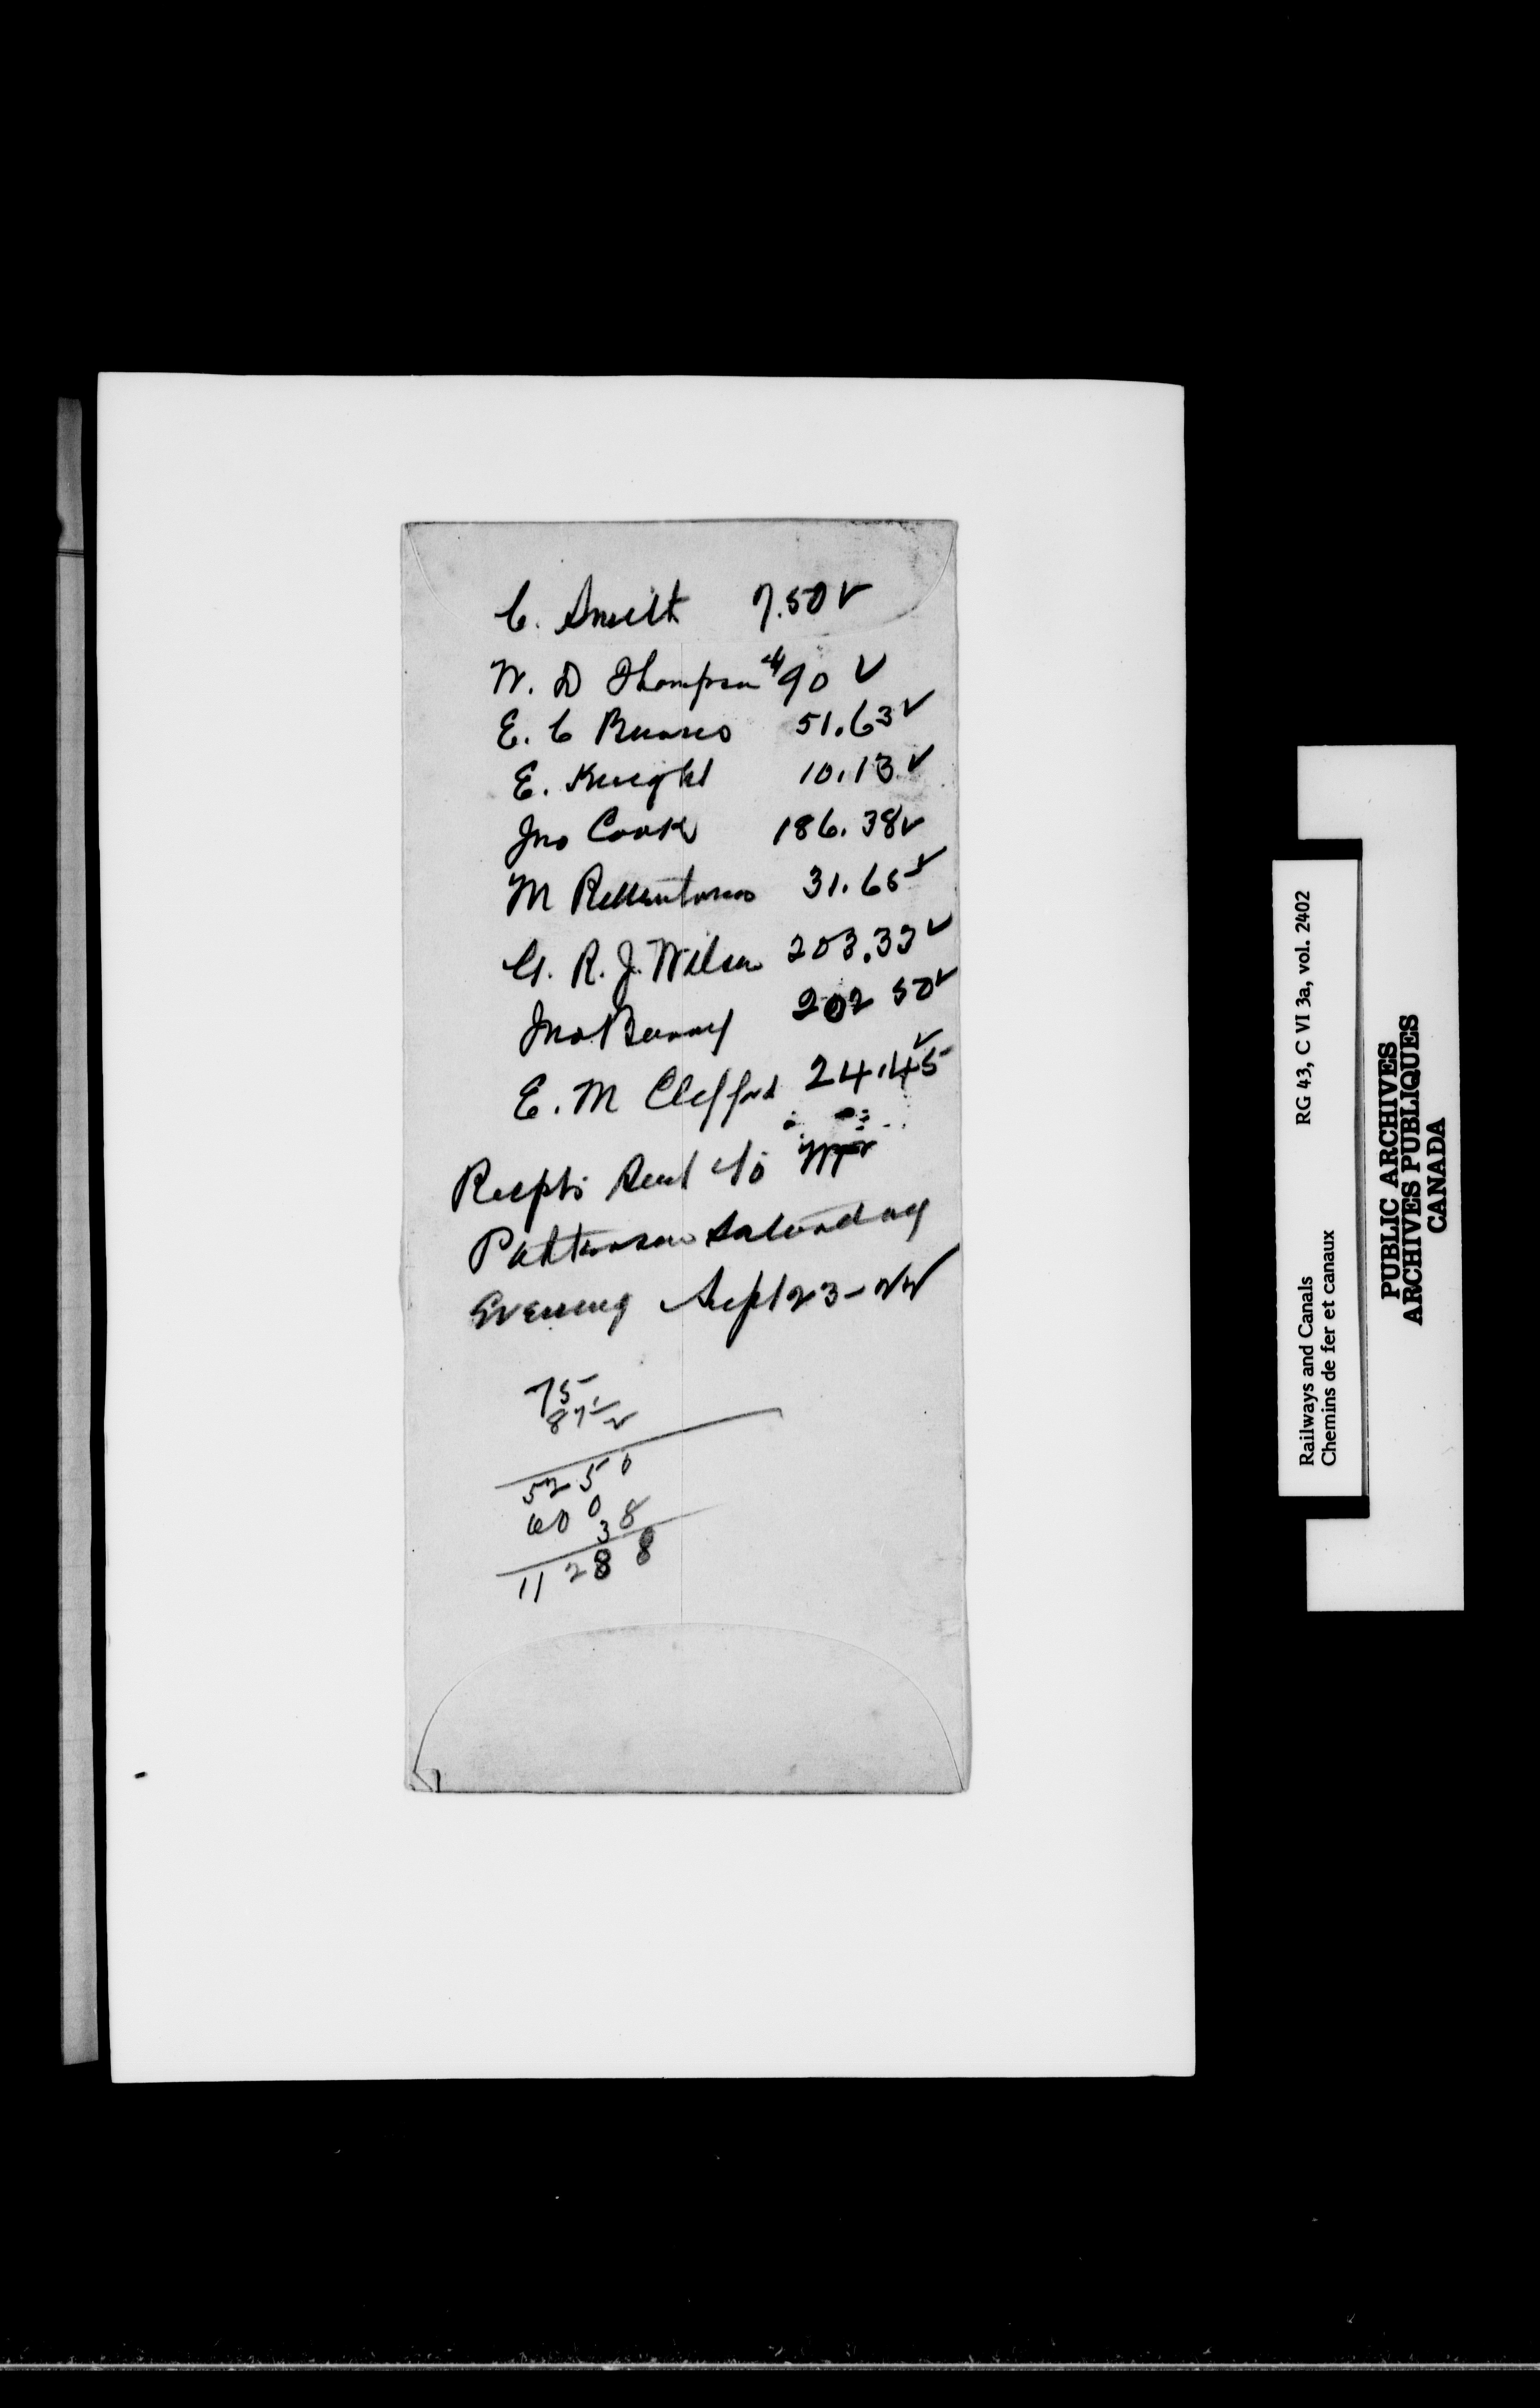 C. Smith 7.50 ✓
W. D Thompson 90 ✓
E. C 51.63 ✓
E. Knight 10.13 ✓
Jno Cook 186.38 ✓
M 31.65 ✓
G. R. J. Wilson 203.33 ✓
Jno 202 50 ✓
E. M Clifford 24.45 ✓
Recpts Sent to Mr
Patterson Saturday
Evening Sept 23-
75
87½
5250
600
38
11288
Railways and Canals RG 43, C VI 3a, vol. 2402
Chemins de fer et canaux
PUBLIC ARCHIVES
ARCHIVES PUBLIQUES
CANADA